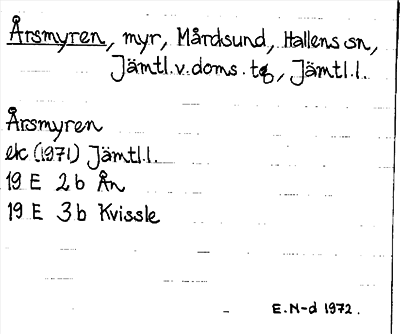 Årsmyren, myr, Mårdsund, Hallens sn,
Jämtl.v.doms.tg, Jämtl.l.
Årsmyren
ek (1971) Jämtl.l.
19 E 2b Ån
19 E 3b Kvissle
E.N-d 1972.